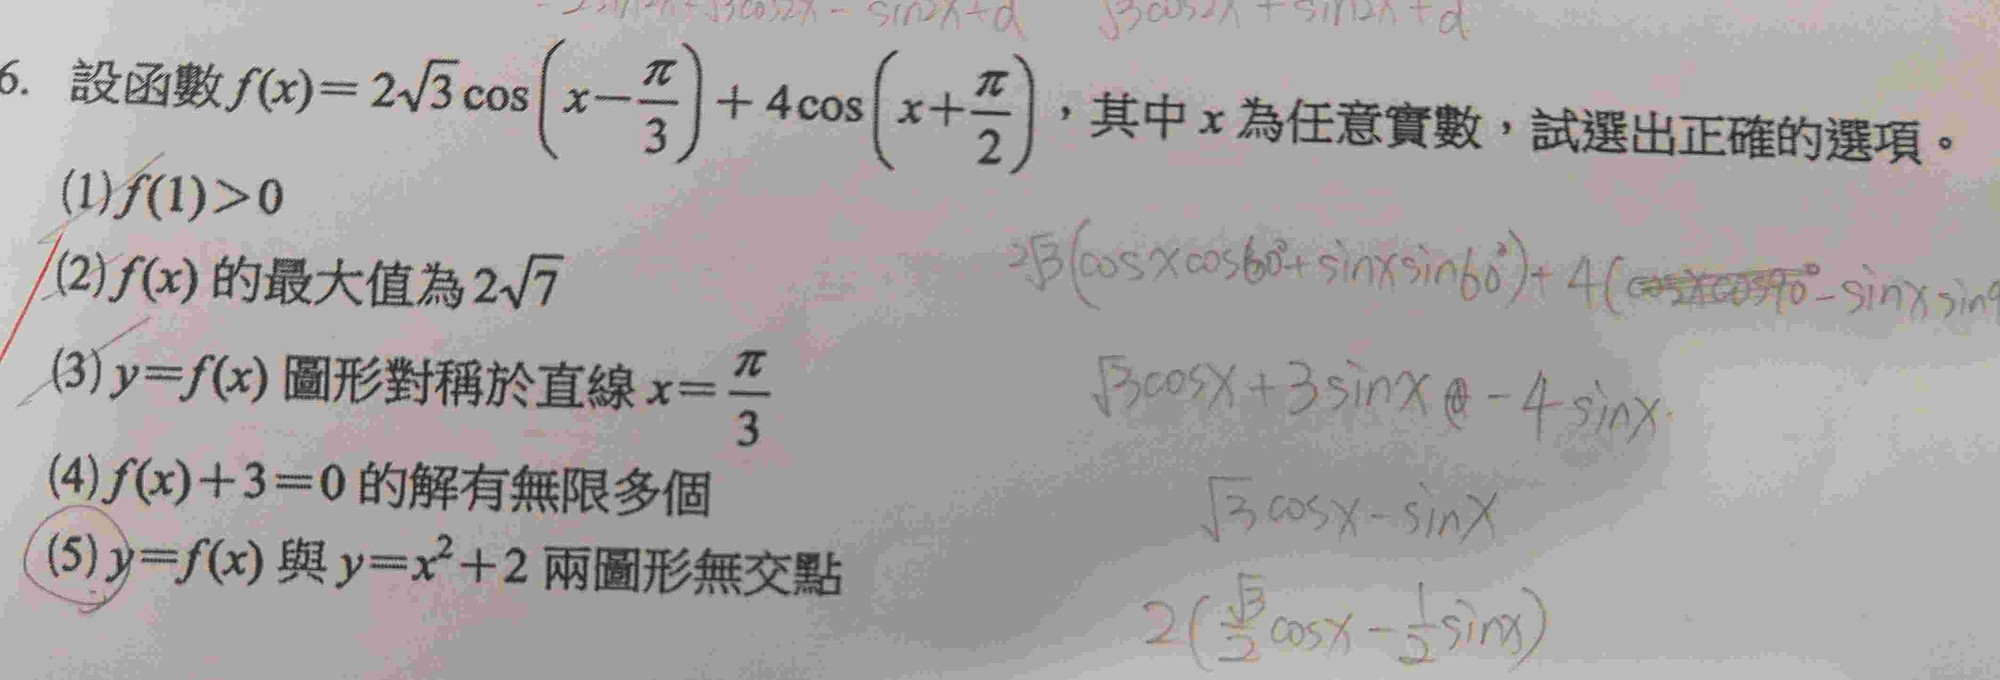 √3cos2x - sin2x+d √3cos2x + sin2x + d
6. 設函數 f(x)=2√3 cos(x-π/3)+4cos(x+π/2),其中 x 為任意實數,試選出正確的選項。
(1) f(1)>0
(2) f(x) 的最大值為 2√7
(3) y=f(x) 圖形對稱於直線 x=π/3
(4) f(x)+3=0 的解有無限多個
(5) y=f(x) 與 y=x²+2 兩圖形無交點
2√3(cosxcos60°+sinxsin60°)+4(cosxcos90°-sinxsin9
√3cosx+3sinx-4sinx
√3cosx-sinx
2(√3/2 cosx - 1/2 sinx)